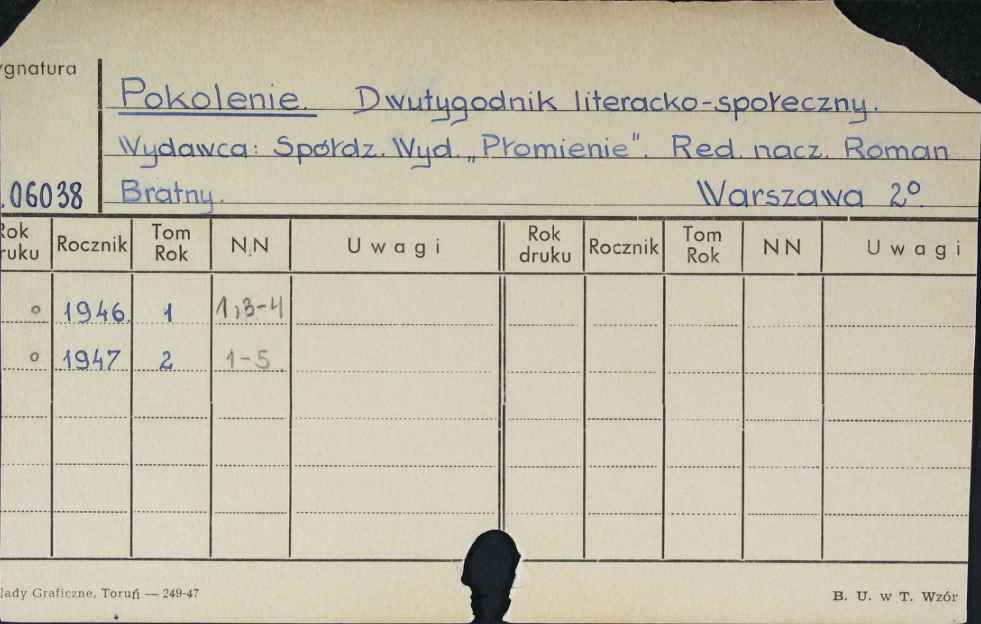 ygnatura
Pokolenie. Dwutygodnik literacko-społeczny.
Wydawca: Spółdz. Wyd. „Płomienie". Red. nacz. Roman
.06038 Bratny. Warszawa 2º
Rok druku Rocznik Tom Rok N.N Uwagi Rok druku Rocznik Tom Rok NN Uwagi
o 1946 1 1,3-4
o 1947 2 1-5
łady Graficzne, Toruń — 249-47 B. U. w T. Wzór